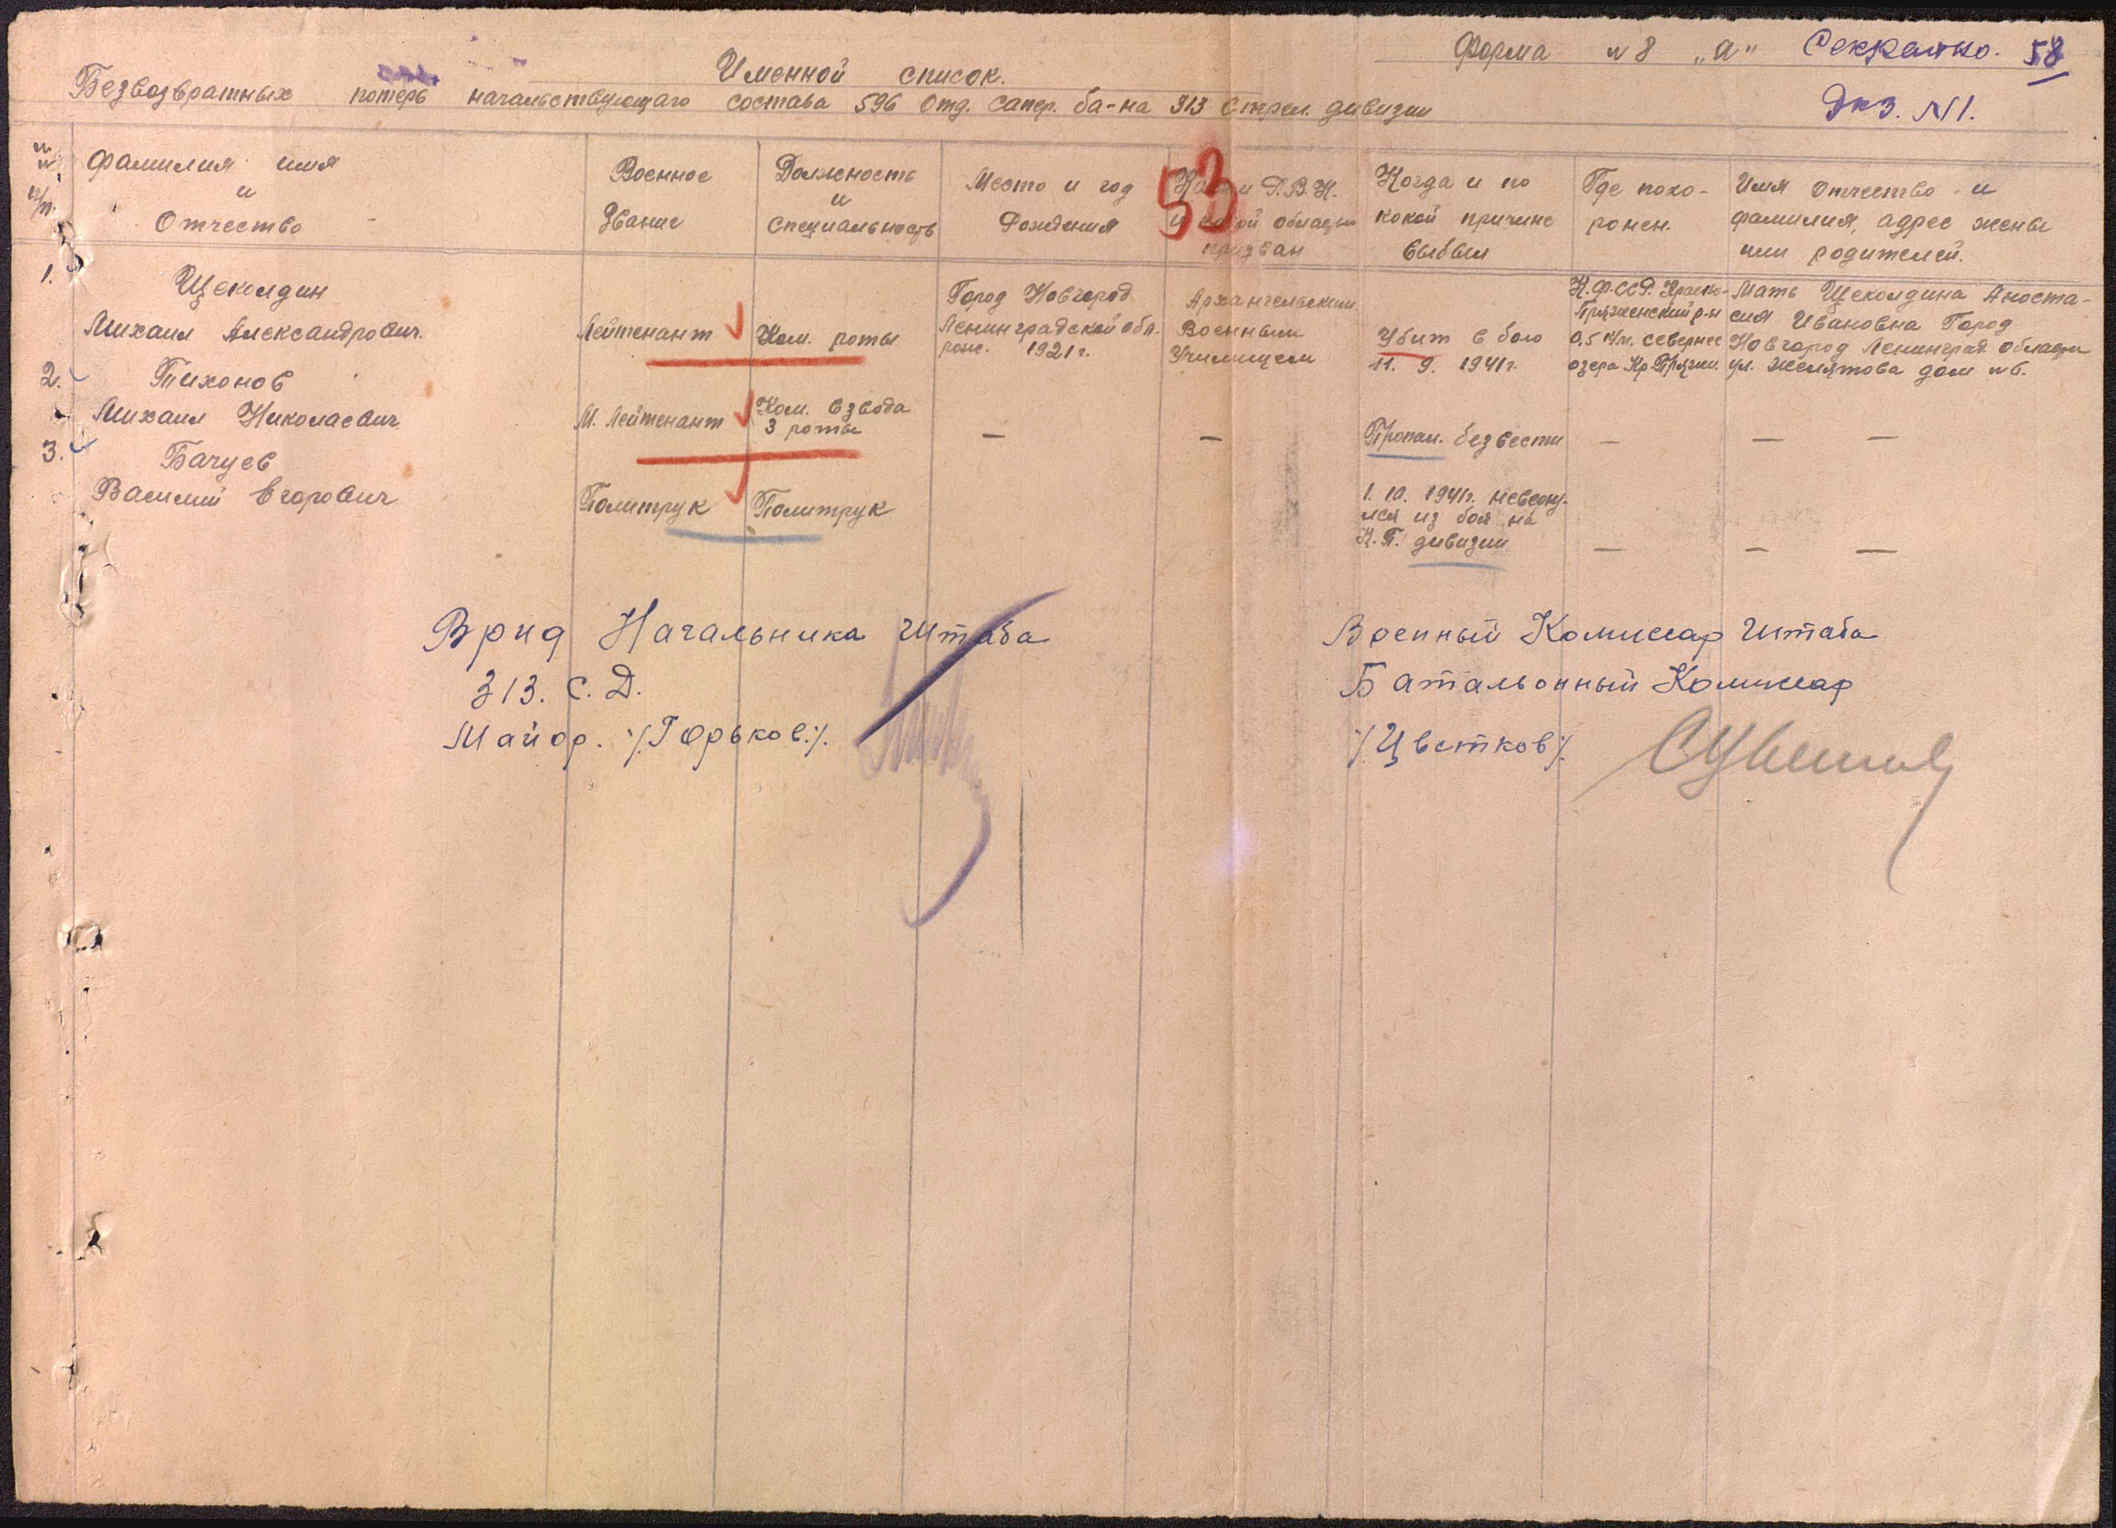 Форма №8 „а" Секретно. 58
Именной список.
Безвозвратных потерь начальствующаго состава 596 Отд. сапер. ба-на 313 стрел. дивизии
Экз. №1.
53
№№ п/п.
Фамилия имя
и
Отчество
Военное
Звание
Должность
и
специальность
Место и год
Рождения
Р.В.К.
и какой области
призван
Когда и по
какой причине
выбыл
Где похо-
ронен.
Имя Отчество и
фамилия, адрес жены
или родителей.
1.
Щеколдин
Михаил Александрович.
Лейтенант
Ком. роты
Город Новгород
Ленинградской обл.
1921г.
Архангельским
Военным
Училищем
Убит в бою
11. 9. 1941г.
К.Ф.ССР. Красно-
Пряженский р-н
0,5 к/м. севернее
озера Кр. Пряжи.
Мать Щеколдина Анаста-
сия Ивановна Город
Новгород Ленинград. области
ул. Желятова дом №6.
2.
Тихонов
Михаил Николаевич
М. Лейтенант
Ком. взвода
3 роты
—
—
Пропал. безвести
—
— —
3.
Бачуев
Василий Егорович
Политрук
Политрук
1. 10. 1941г. невернул-
лся из боя на
К.П. дивизии
—
— —
Врид Начальника Штаба
313. С. Д.
Майор. /Горьков./.
Военный Комиссар Штаба
Батальонный Комиссар
/Цветков/.